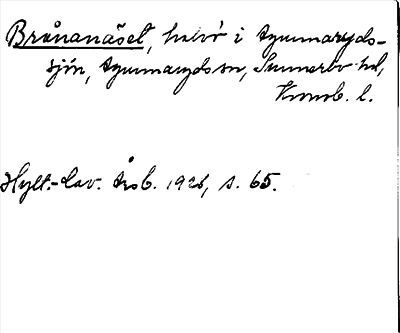 Brånanäset, halvö i Agunnaryds-
sjön, Agunnaryds sn, Sunnerbo hd,
Kronob. l.
Hylt.-Cav. årsb. 1926, s. 65.